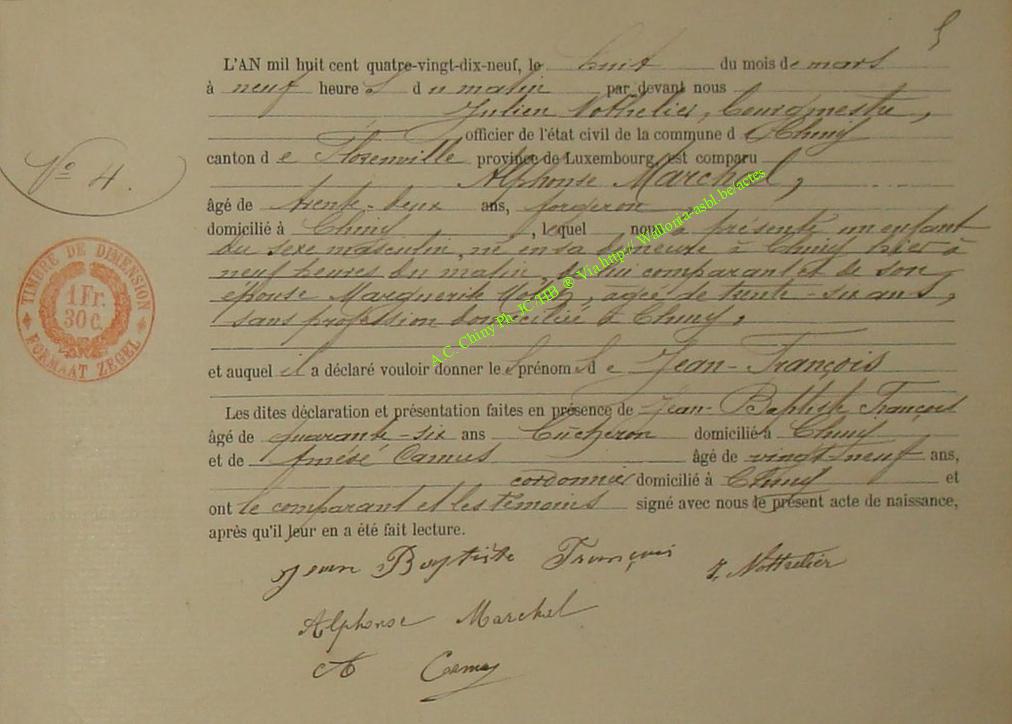 5
L'AN mil huit cent quatre-vingt-dix-neuf, le huit du mois de mars
à neuf heures du matin par devant nous
Julien Nothelier, bourgmestre,
officier de l'état civil de la commune de Chiny
canton de Florenville province de Luxembourg, est comparu
Alphonse Marchal,
N° 4.
âgé de trente-deux ans, forgeron
domicilié à Chiny, lequel nous a présenté un enfant
du sexe masculin, né en sa demeure à Chiny hier à
neuf heures du matin, de lui comparant et de son
épouse Marguerite, agée de trente-six ans,
sans profession domiciliée à Chiny,
et auquel il a déclaré vouloir donner les prénoms de Jean-François
Les dites déclaration et présentation faites en présence de Jean-Baptiste François
âgé de quarante-six ans bûcheron domicilié à Chiny
et de Amédé Camus âgé de vingt-neuf ans,
cordonnier domicilié à Chiny et
ont le comparant et les témoins signé avec nous le présent acte de naissance,
après qu'il leur en a été fait lecture.
Jean Baptiste François J. Nothelier
Alphonse Marchal
A
TIMBRE DE DIMENSION
1 Fr.
30 C.
FORMAAT ZEGEL
A.C. Chiny Ph JC /HB ® Via http// Wallonia-asbl.be/actes